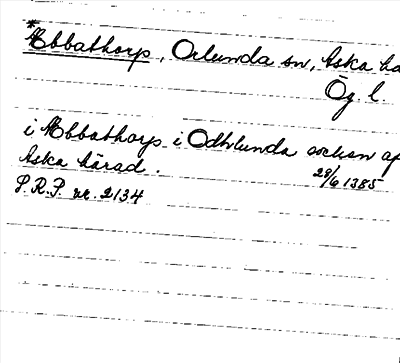 *Æbbathorp, Orlunda sn, Aska hä
Ög. l.
i Æbbathorp i Odhrlunda sochun ap
Aska härad. 28/6 1385
S.R.P. nr. 2134